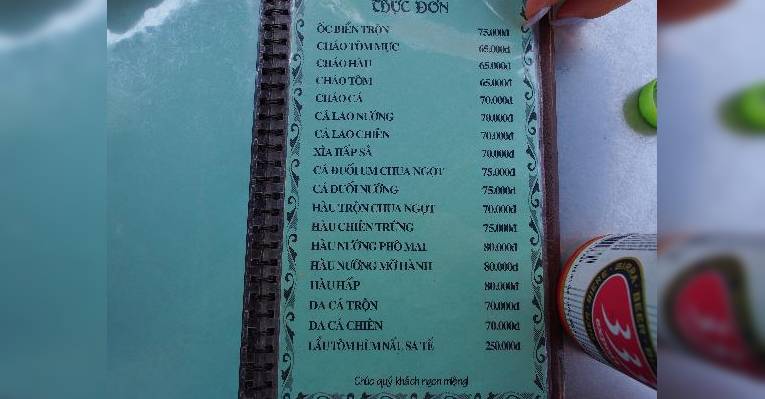 THỰC ĐƠN
ỐC BIỂN TRỘN 75.000đ
CHÁO TÔM MỰC 65.000đ
CHÁO HÀU 65.000đ
CHÁO TÔM 65.000đ
CHÁO CÁ 70.000đ
CÁ LAO NƯỚNG 70.000đ
CÁ LAO CHIÊN 70.000đ
XÌA HẤP SẢ 70.000đ
CÁ ĐUỐI UM CHUA NGỌT 75.000đ
CÁ ĐUỐI NƯỚNG 75.000đ
HÀU TRỘN CHUA NGỌT 70.000đ
HÀU CHIÊN TRỨNG 75.000đ
HÀU NƯỚNG PHÔ MAI 80.000đ
HÀU NƯỚNG MỠ HÀNH 80.000đ
HÀU HẤP 80.000đ
DA CÁ TRỘN 70.000đ
DA CÁ CHIÊN 70.000đ
LẨU TÔM HÙM NẤU SA TẾ 250.000đ
Chúc quý khách ngon miệng!
33